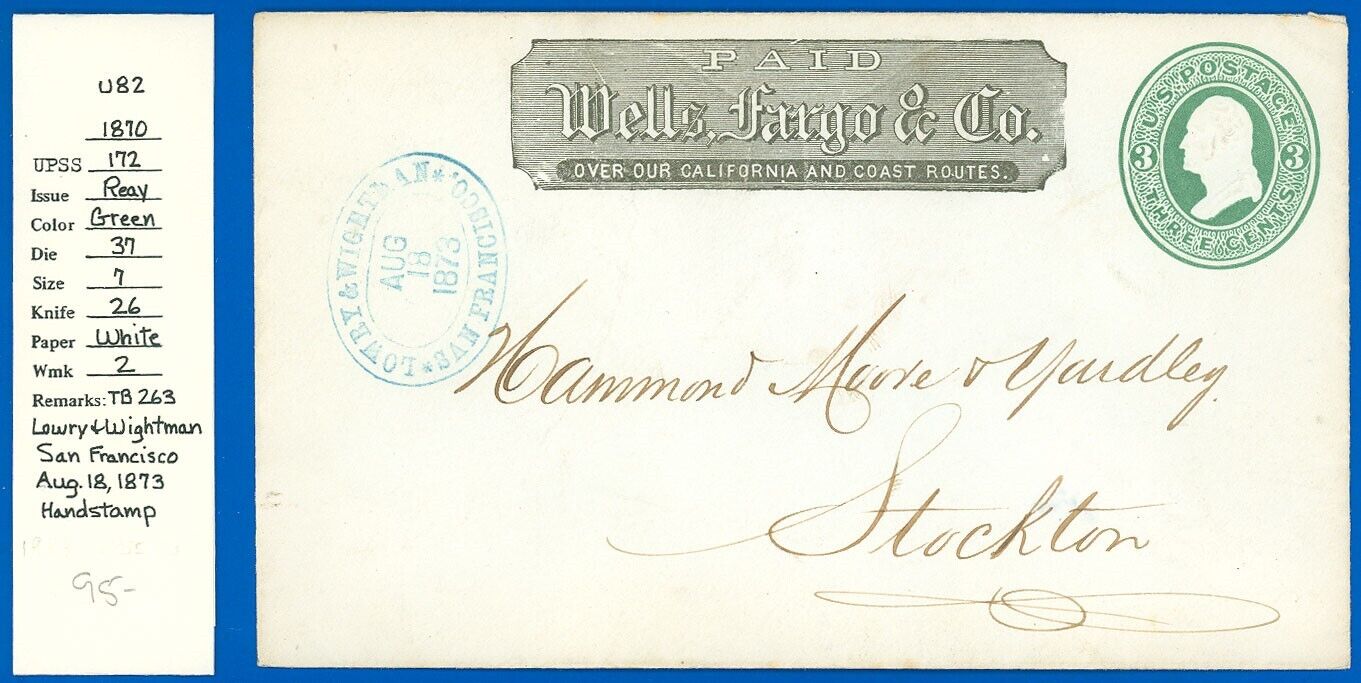 U82
1870
UPSS 172
Issue Reay
Color Green
Die 37
Size 7
Knife 26
Paper White
Wmk 2
Remarks: TB 263
Lowry & Wightman
San Francisco
Aug. 18, 1873
Handstamp
95-
PAID
Wells, Fargo & Co.
OVER OUR CALIFORNIA AND COAST ROUTES.
U.S. POSTAGE
3 3
THREE CENTS
LOWRY & WIGHTMAN
AUG
18
1873
SAN FRANCISCO.
Hammond Moore & Yardley.
Stockton